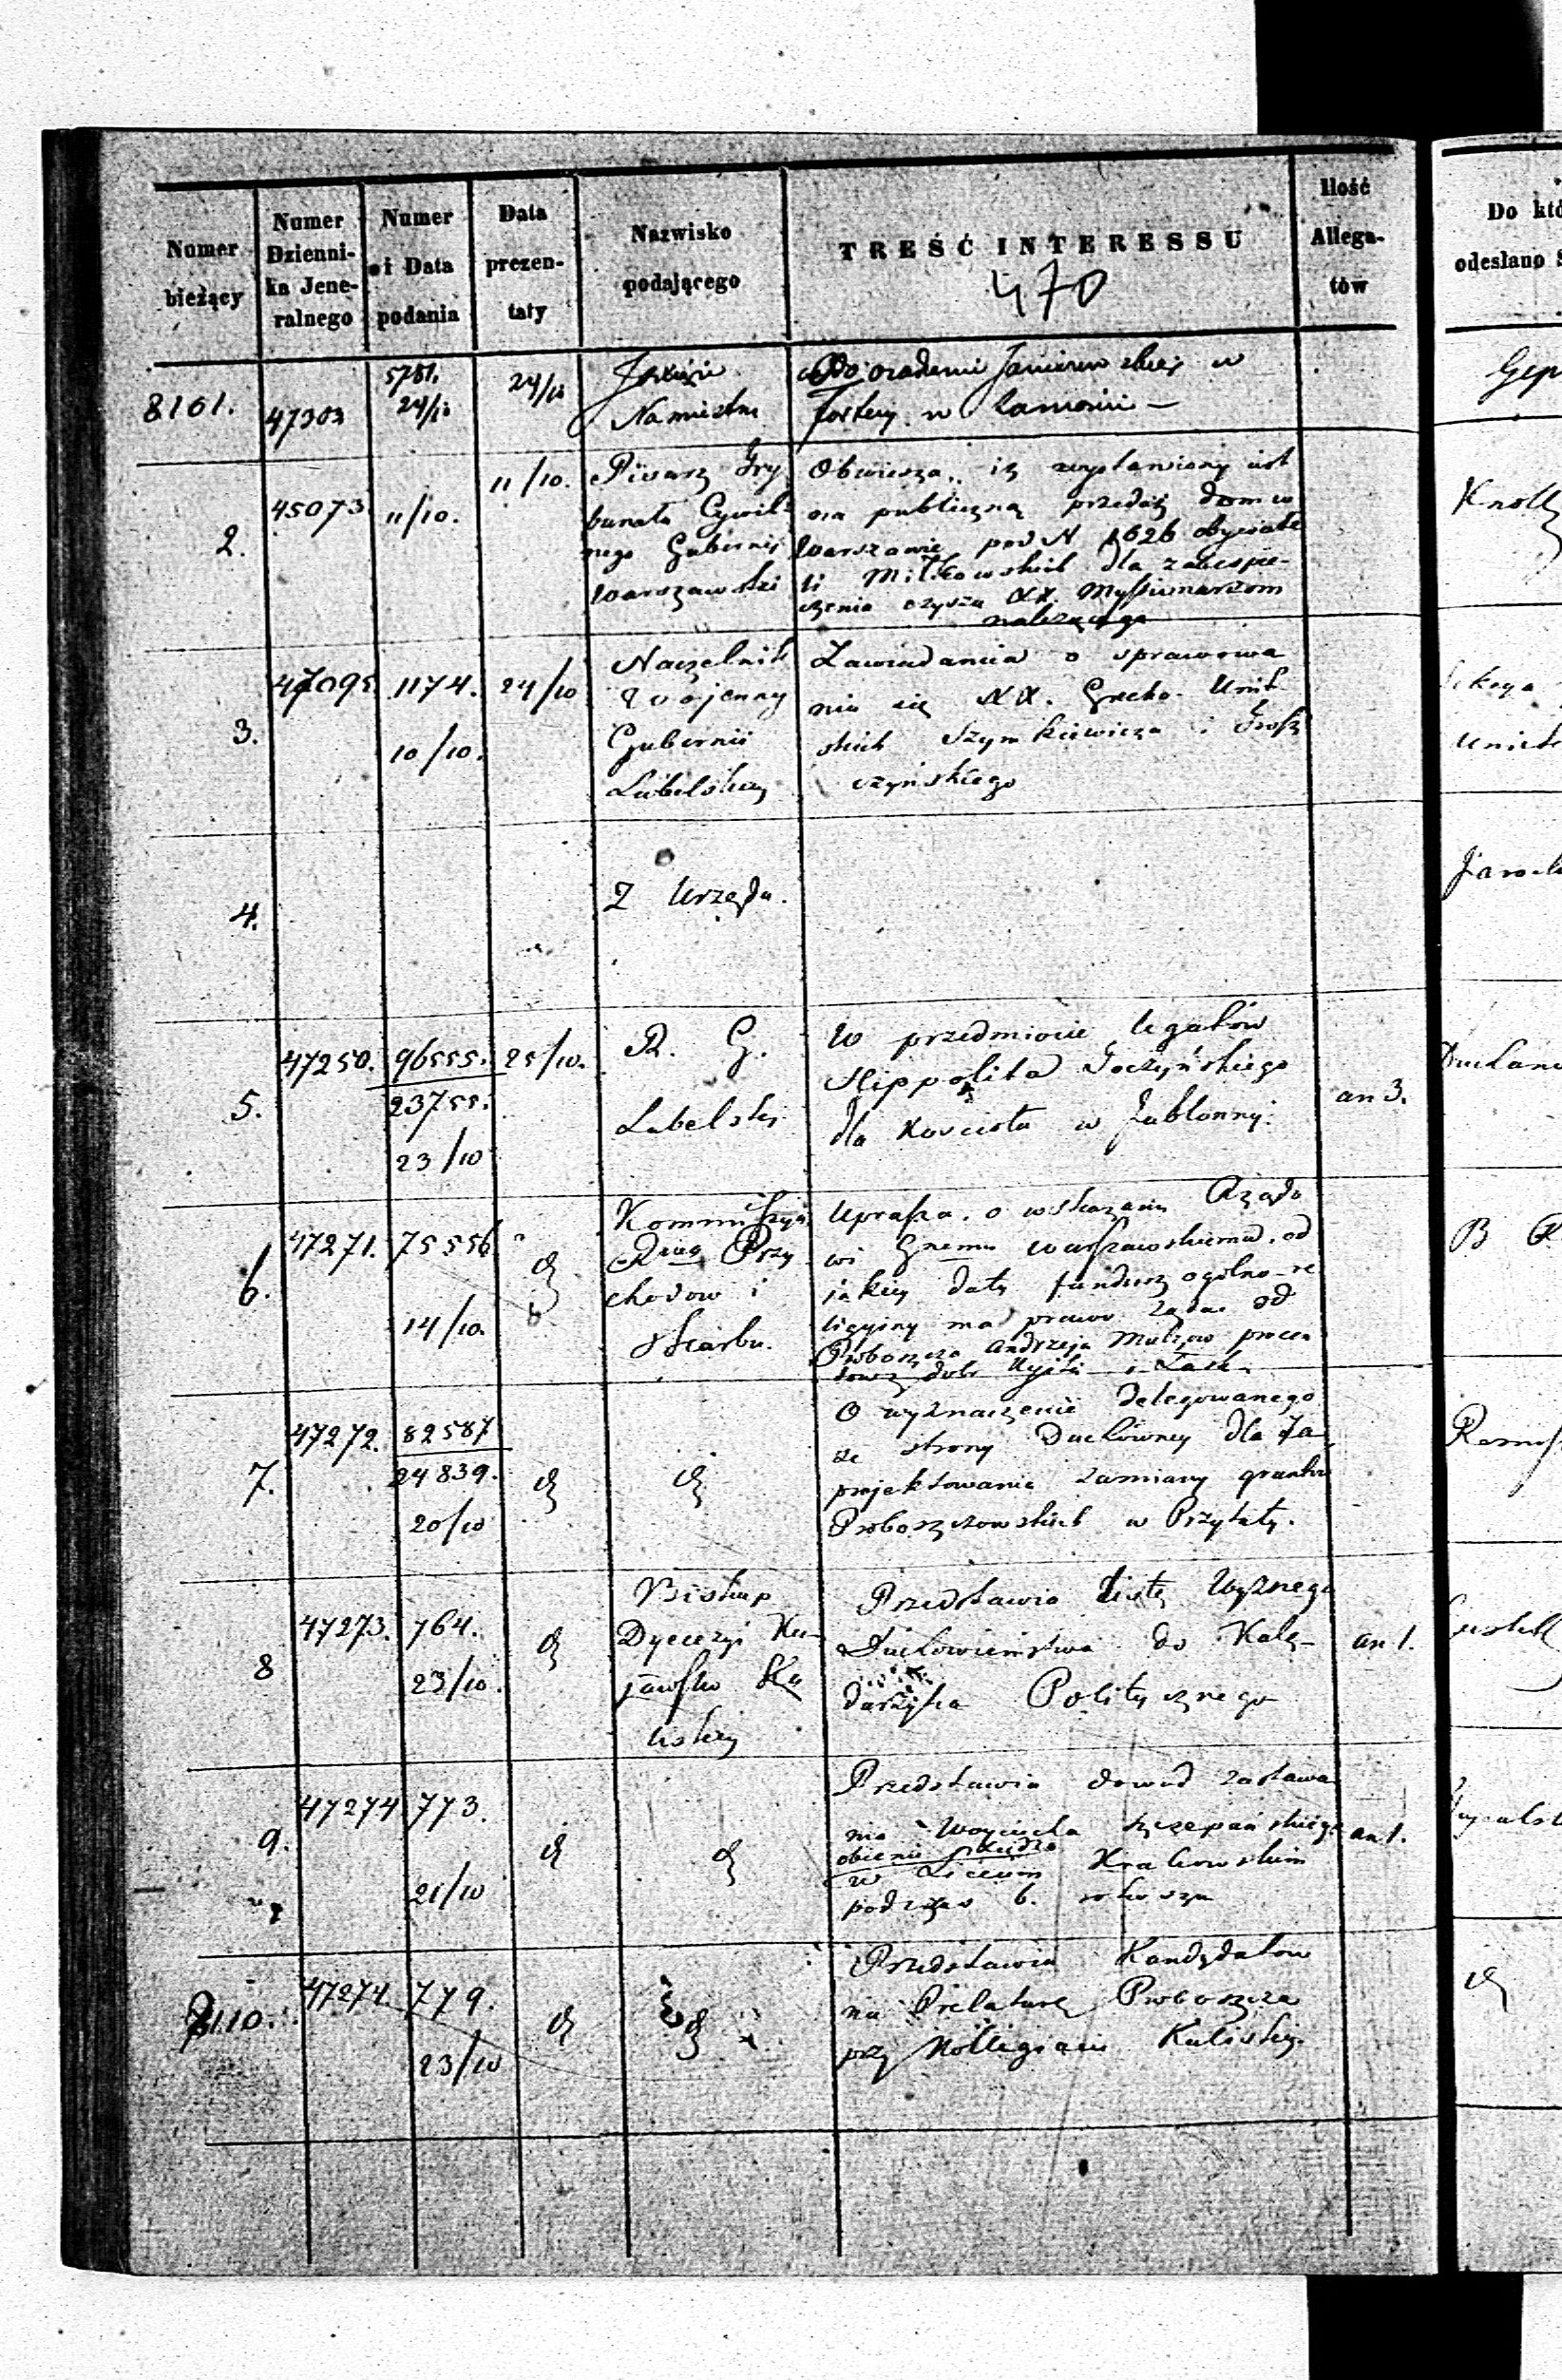 Numer bieżący
Numer Dziennika Jeneralnego
Numer i Data podania
Data prezentaty
Nazwisko podającego
TREŚĆ INTERESSU
Ilość Allegatów
Do któ
odesłano S
470
8101.
47303
5781.
24/10
24/10
Xiąże
Namiestn
osadzeniu w
fortecy w Zamościu —
2.
45073
11/10.
11/10.
Pisarz Try
bunału Cywil-
nego Gubernij
Warszawski
Obwiesza, iż wystawiony jest
na publiczną przedaż dom w
Warszawie pod N 1626 obywate
li Mitkowskich dla zabespie-
czenia czynszu XX. Myssionarzom
należącego
Knoll
3.
47095
1174.
10/10.
24/10
Naczelnik
Wojenny
Gubernii
Lubelskiey
Zawiadamia o sprawowa
niu się XX. Grecko-Unit
skich Szymkiewicza i
czyńskiego
4.
Z Urzędu.
5.
47250.
96555.
23755.
23/10
25/10.
R. G.
Lubelski
W przedmiocie legatów
Hippolita Toczyńskiego
dla Kościoła w Jabłonny.
an 3.
6.
47271.
75556.
14/10.
d
Kommissyja
Rząd Przy
chodów i
Skarbu.
Uprasza o wskazanie Rządo
wi Gnemu Warszawskiemu, od
jakiey daty fundusz ogólno-re
ligyiny ma prawo żądać od
Proboszcza Andrzeja procen
dóbr
7.
47272.
82587
24839.
20/10
d
d
O wyznaczenie delegowanego
ze strony Duchowney dla za
projektowania zamiany gruntu
Proboszczowskich w Przytyły.
8
47273.
764.
23/10.
d
Biskup
Dyecezyi Ku-
jawsko Ka
liskiey
Przedstawia Listę Wyższego
Duchowieństwa do Kalę-
darzyka Politycznego
an 1.
9.
47274
773.
21/10
d
d
Przedstawia dowód zastawa
nia Woyciecha Szczepańskiego
obecnie Xiędza
w Liceum Krakowskim
podczas 6.
an 1.
8110.
47274.
779.
23/10
d
d
Przedstawia Kandydatów
na Prelaturę Proboszcza
przy Kollegiacie Kaliskiey.
d